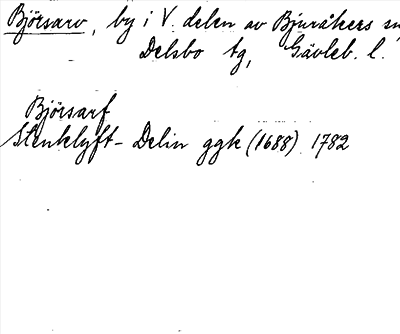 Björsarv, by i V. delen av Bjuråkers sn
Delsbo tg, Gävleb. l.
Björsarf
Stenklyft- Delin ggk (1688) 1782